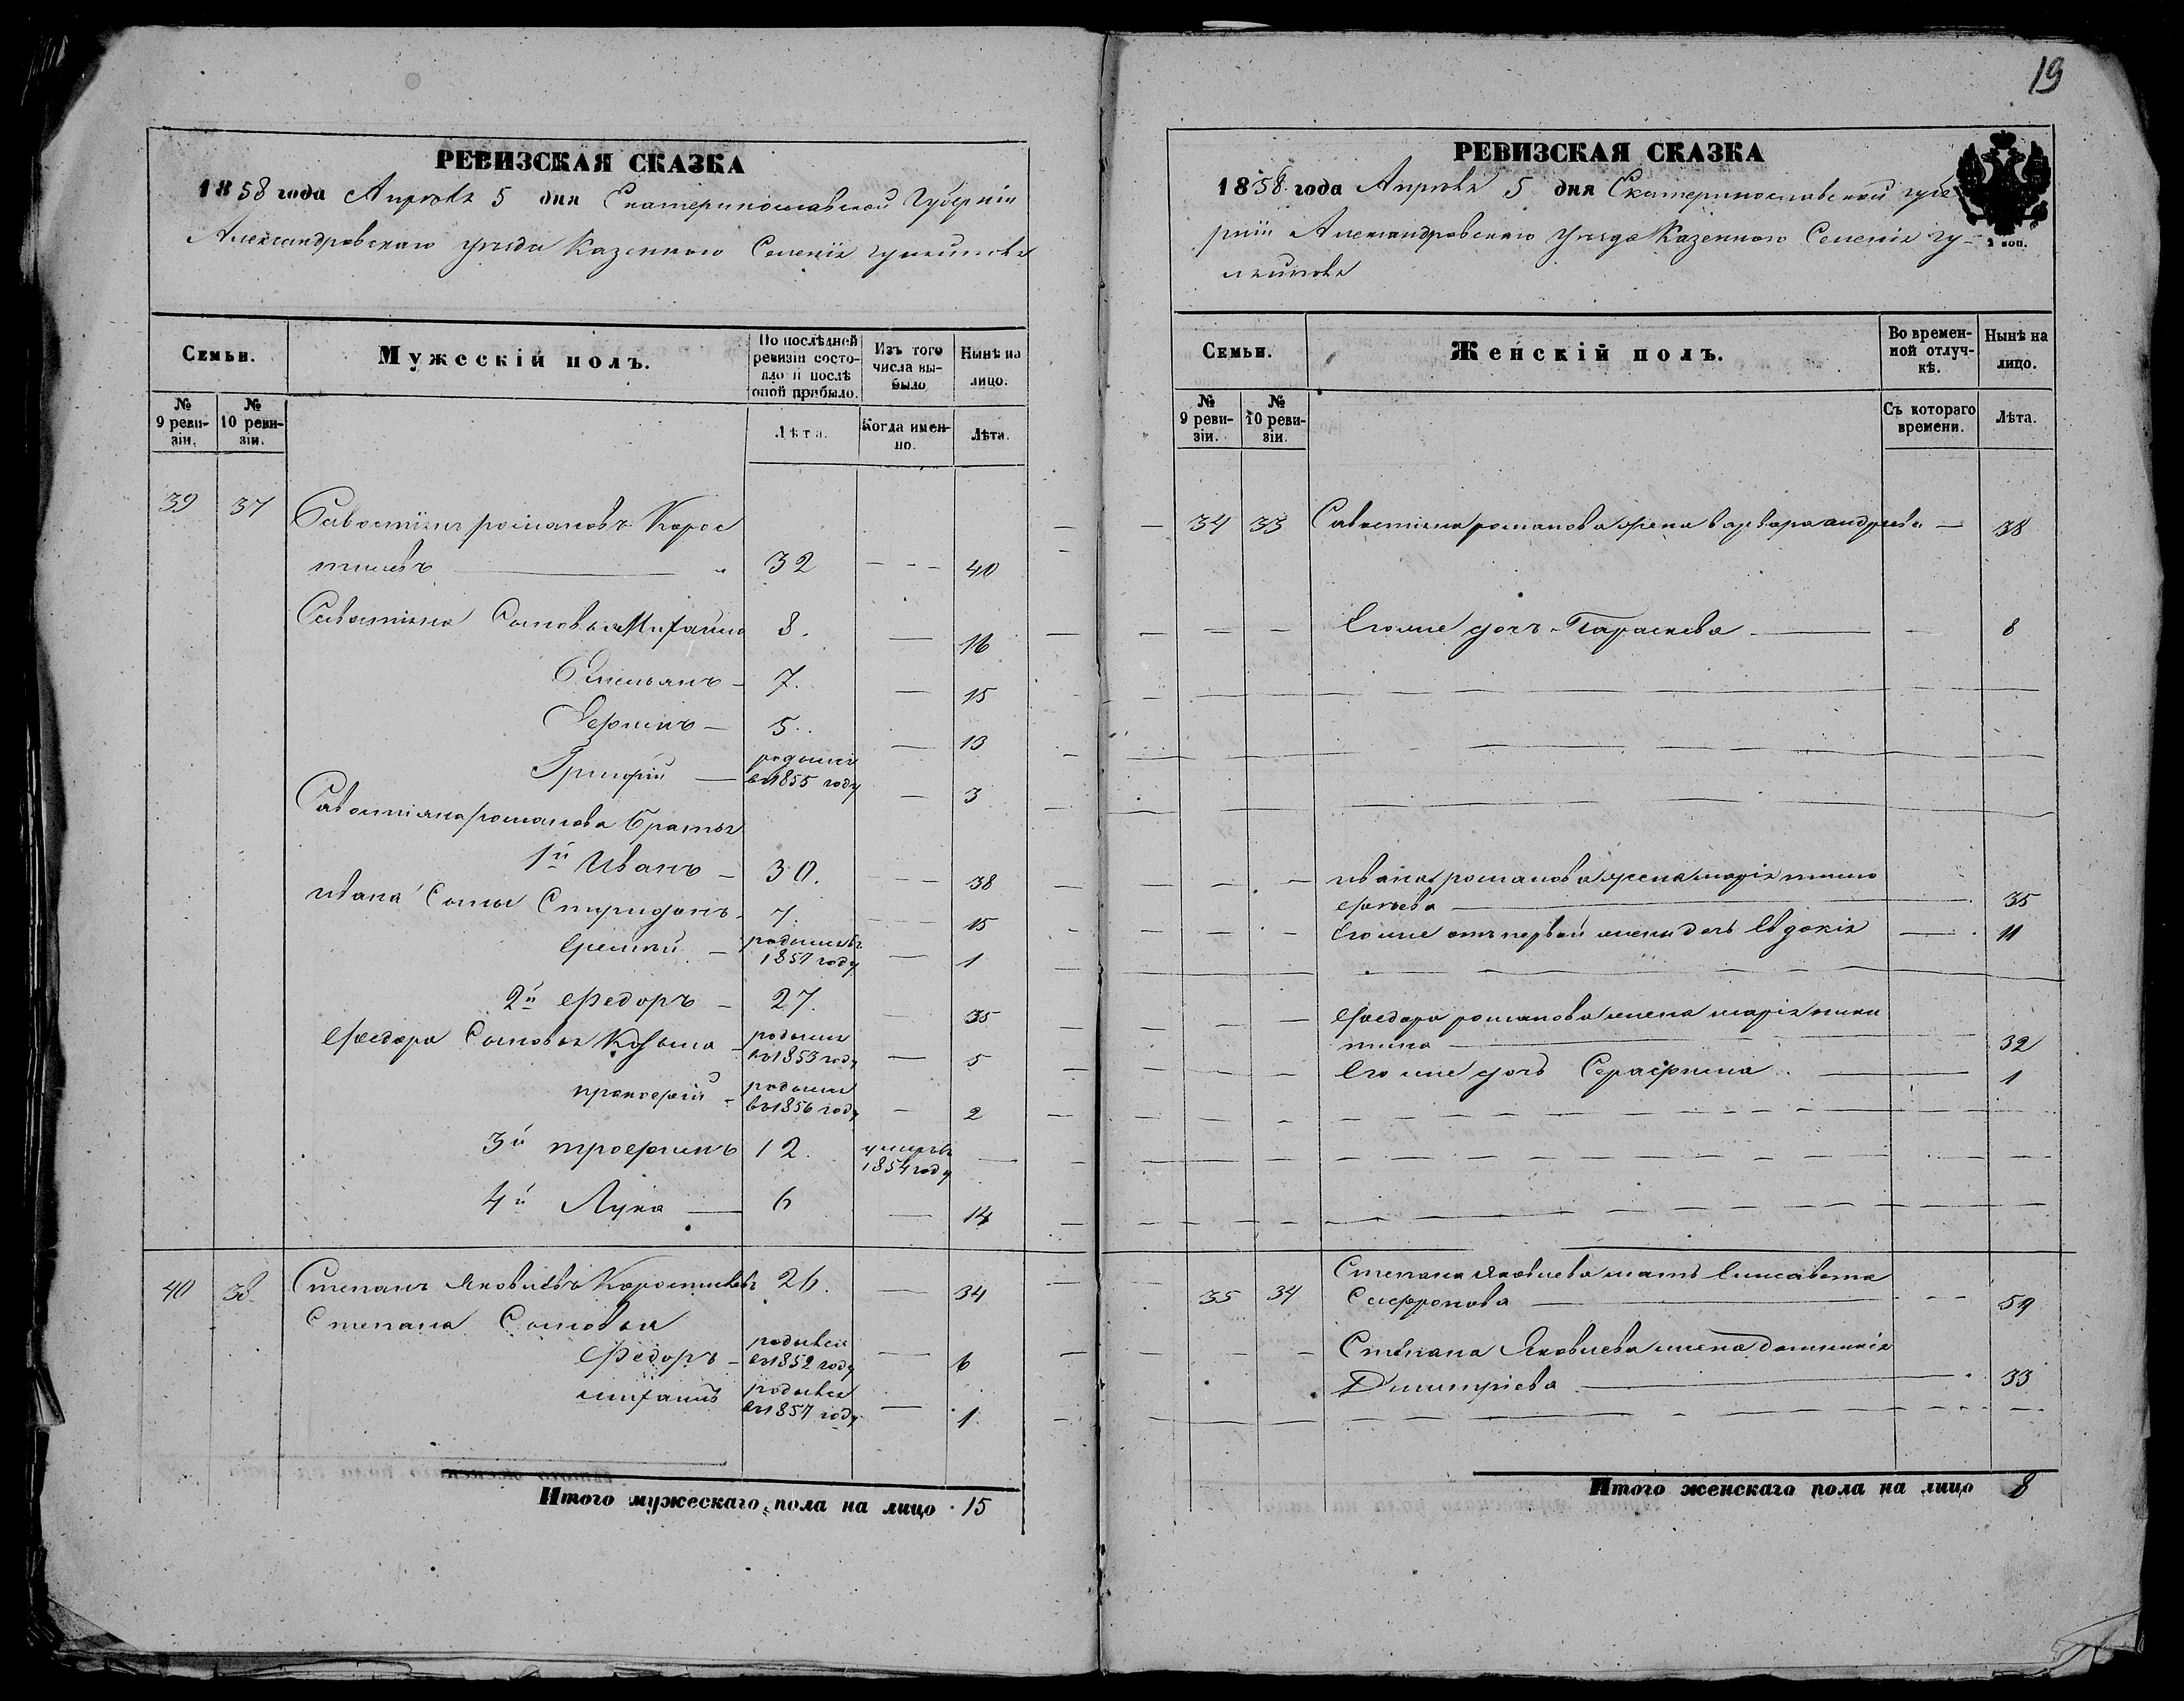 19
РЕВИЗСКАЯ СКАЗКА
1858 года Апрѣля 5 дня Екатеринославской Губерніи
Александровскаго уѣзда Казенного Селенія
Семьи.
Мужескій полъ.
По послѣдней ревизіи состояло и послѣ оной прибыло.
Изъ того числа выбыло
Нынѣ на лицо.
№ 9 ревизіи.
№ 10 ревизіи.
Лѣта.
Когда именно.
Лѣта.
39 37 Савостіянъ романовъ Корос
тилевъ 32 - - - 40
Савостіяна Сыновья Михайло 8. — 16
Емельянъ — 7. — 15
Ефимъ — 5. — 13
Григорій — родился въ 1855 году — 3
Савостіяна романова братья
1й Иванъ — 30. — 38
ивана Сыны Спиридонъ — 7. — 15
Еремѣй — родился 1857 году — 1
2й Федоръ — 27. — 35
Федора Сыновья Козьма — родился въ 1853 году — 5
прокофій — родился въ 1856 году — 2
3й трофимъ 12. умеръ въ 1854 году —
4й Лука — 6 — 14
40 38 Степанъ Яковлевъ Коростилевъ 26. — 34
Степана Сыновья
Федоръ — родился въ 1852 году — 6
михаилъ родился въ 1857 году — 1
Итого мужескаго пола на лицо 15
РЕВИЗСКАЯ СКАЗКА
1858 года Апрѣля 5 дня Екатеринославской губе
рніи Александровскаго Уѣзда Казенного Селенія
2 коп.
Семьи.
Женскій полъ.
Во временной отлучкѣ.
Нынѣ на лицо.
№ 9 ревизіи.
№ 10 ревизіи.
Съ котораго времени.
Лѣта.
34 33 Савостіяна романова жена варвара андреева — 38
Его же дочь Параскева — 8
ивана романова жена марія тимо
фѣева — 35
Его же отъ первой жены дочь Евдокія — 11
Федора романова жена марія ники
тина — 32
Его же дочь Серафима — 1
35 34 Степана Яковлева мать Елисавета
Сафронова — 59
Степана Яковлева жена Домникія
Дмитріева — 33
Итого женскаго пола на лицо 8